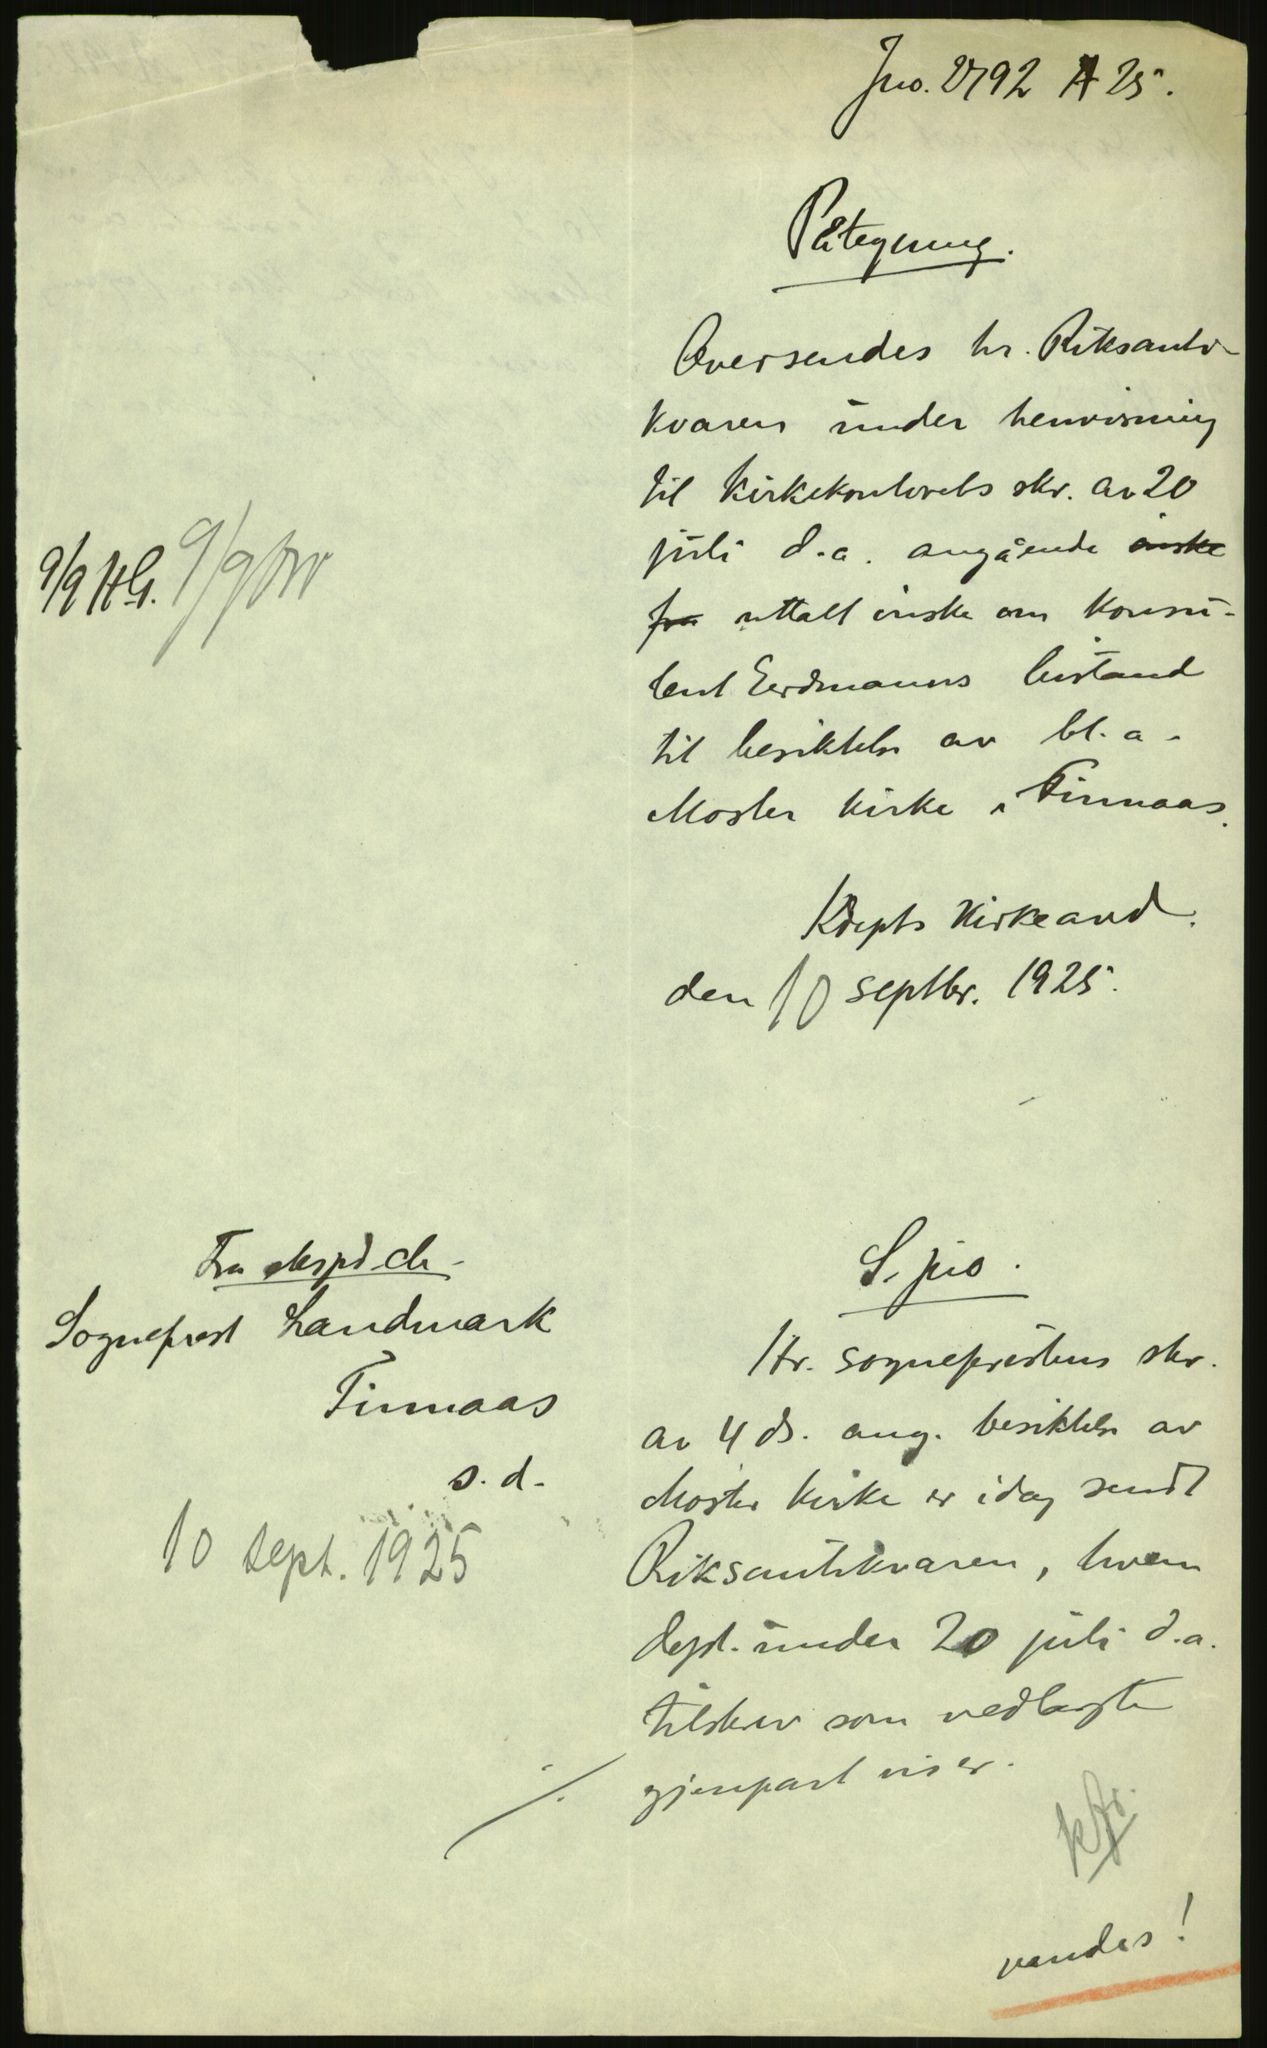 Jno. 2792 A 25.
Påtegning.
Oversendes hr. Riksanti-
kvaren under henvisning
til Kirkekontorets skr. av 20
juli d.a. angående ønske
fra uttalt ønske om Konsu-
lent Eerdmanns bistand
til besiktelse av bl.a.
Moster kirke i Finnaas.
Kdepts Kirkeavd.
den 10 septbr. 1925.
9/9 HG. 9/9
Fra eksp.ch.
Sogneprest Landmark
Finnaas
s.d.
10 sept. 1925
S. jno.
Hr. sogneprestens skr.
av 4 ds. ang. besiktelse av
Moster kirke er idag sendt
Riksantikvaren, hvem
dept. under 20 juli d.a.
tilskrev som vedlagte
./. gjenpart viser.
vendes!